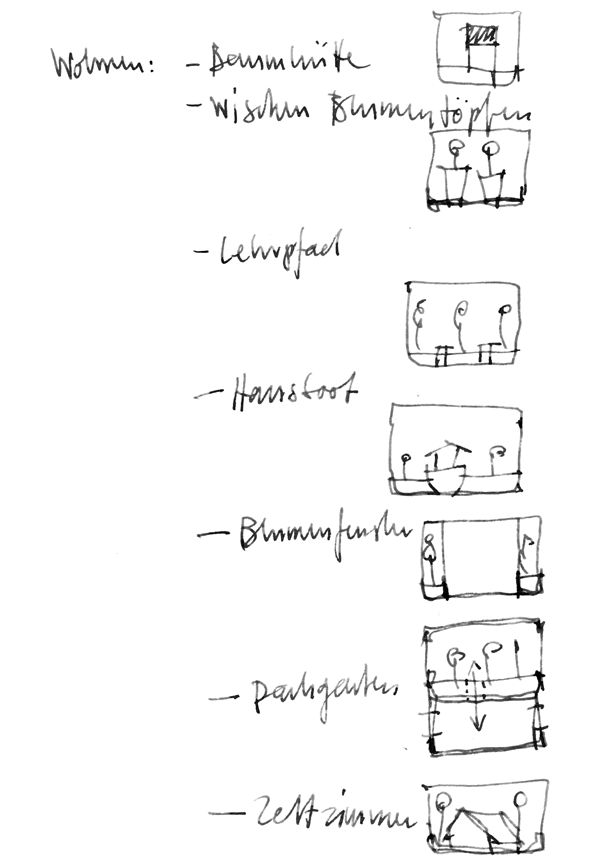 Wohnen: - Baumhütte
- Wischen Blumentöpfen
- Lehrpfad
- Hausboot
- Blumenfenster
- Dachgarten
- Zeltzimmer